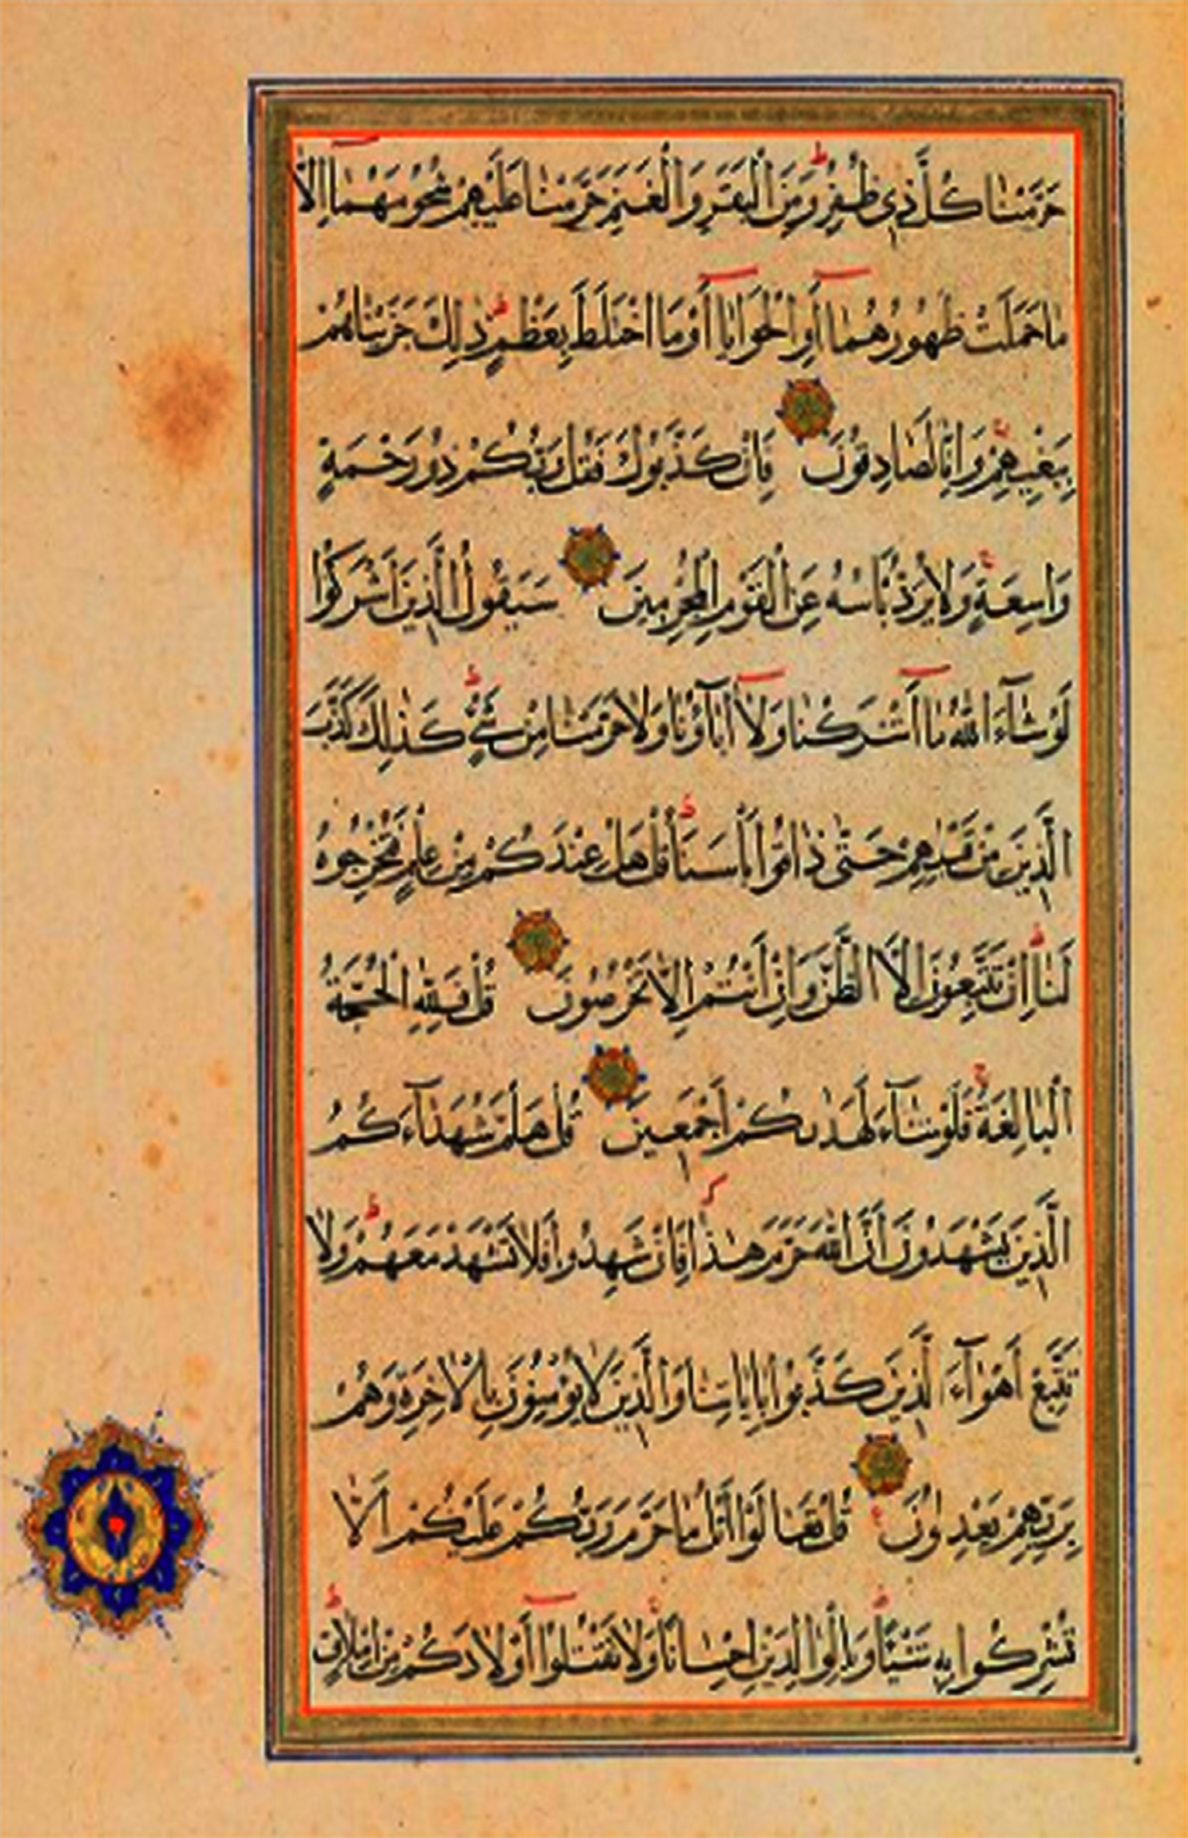 حَرَّمْنَا كُلَّ ذِي ظُفُرٍ وَمِنَ الْبَقَرِ وَالْغَنَمِ حَرَّمْنَا عَلَيْهِمْ شُحُومَهُمَا إِلَّا
مَا حَمَلَتْ ظُهُورُهُمَا أَوِ الْحَوَايَا أَوْ مَا اخْتَلَطَ بِعَظْمٍ ذٰلِكَ جَزَيْنَاهُمْ
بِبَغْيِهِمْ وَإِنَّا لَصَادِقُونَ فَإِنْ كَذَّبُوكَ فَقُلْ رَبُّكُمْ ذُو رَحْمَةٍ
وَاسِعَةٍ وَلَا يُرَدُّ بَأْسُهُ عَنِ الْقَوْمِ الْمُجْرِمِينَ سَيَقُولُ الَّذِينَ أَشْرَكُوا
لَوْ شَآءَ اللّٰهُ مَا أَشْرَكْنَا وَلَا آبَاؤُنَا وَلَا حَرَّمْنَا مِنْ شَيْءٍ كَذٰلِكَ كَذَّبَ
الَّذِينَ مِنْ قَبْلِهِمْ حَتّٰى ذَاقُوا بَأْسَنَا قُلْ هَلْ عِنْدَكُمْ مِنْ عِلْمٍ فَتُخْرِجُوهُ
لَنَا إِنْ تَتَّبِعُونَ إِلَّا الظَّنَّ وَإِنْ أَنْتُمْ إِلَّا تَخْرُصُونَ قُلْ فَلِلّٰهِ الْحُجَّةُ
الْبَالِغَةُ فَلَوْ شَآءَ لَهَدٰىكُمْ أَجْمَعِينَ قُلْ هَلُمَّ شُهَدَآءَكُمُ
الَّذِينَ يَشْهَدُونَ أَنَّ اللّٰهَ حَرَّمَ هٰذَا فَإِنْ شَهِدُوا فَلَا تَشْهَدْ مَعَهُمْ وَلَا
تَتَّبِعْ أَهْوَآءَ الَّذِينَ كَذَّبُوا بِآيَاتِنَا وَالَّذِينَ لَا يُؤْمِنُونَ بِالْآخِرَةِ وَهُمْ
بِرَبِّهِمْ يَعْدِلُونَ قُلْ تَعَالَوْا أَتْلُ مَا حَرَّمَ رَبُّكُمْ عَلَيْكُمْ أَلَّا
تُشْرِكُوا بِهِ شَيْئًا وَبِالْوَالِدَيْنِ إِحْسَانًا وَلَا تَقْتُلُوا أَوْلَادَكُمْ مِنْ إِمْلَاقٍ